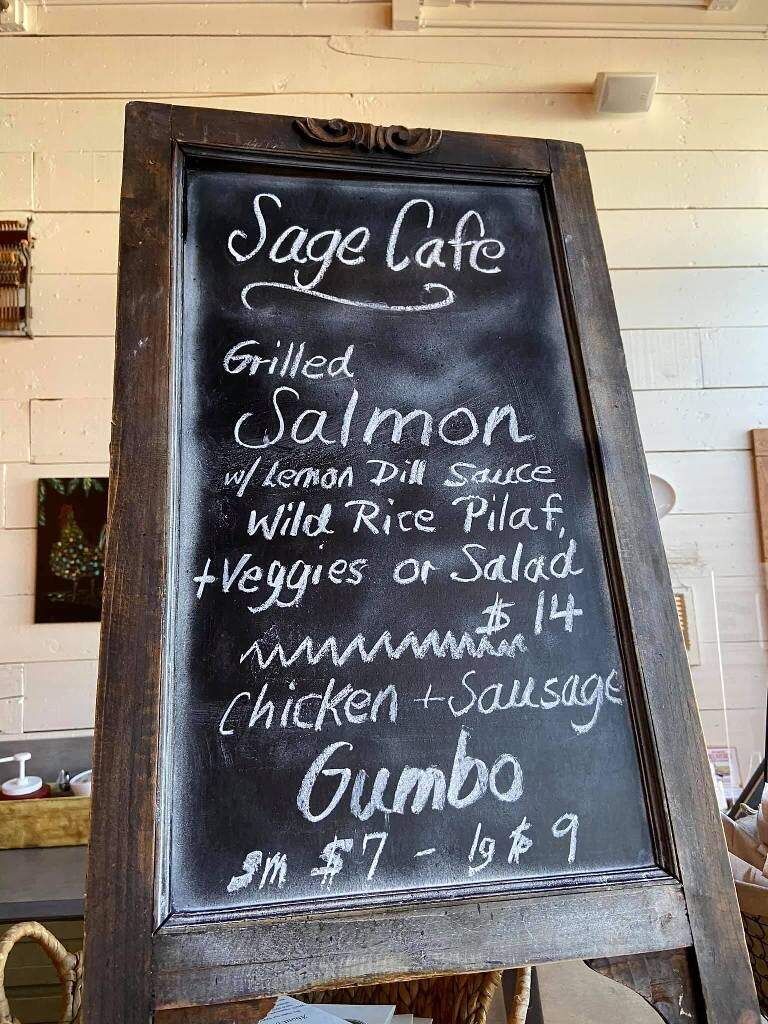 Sage Cafe
Grilled
Salmon
w/ Lemon Dill Sauce
Wild Rice Pilaf,
+Veggies or Salad
$14
Chicken + Sausage
Gumbo
sm $7 - lg $9